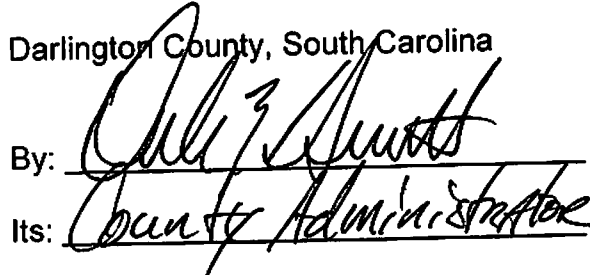 Darlington County, South Carolina
By:
Its: County Administrator